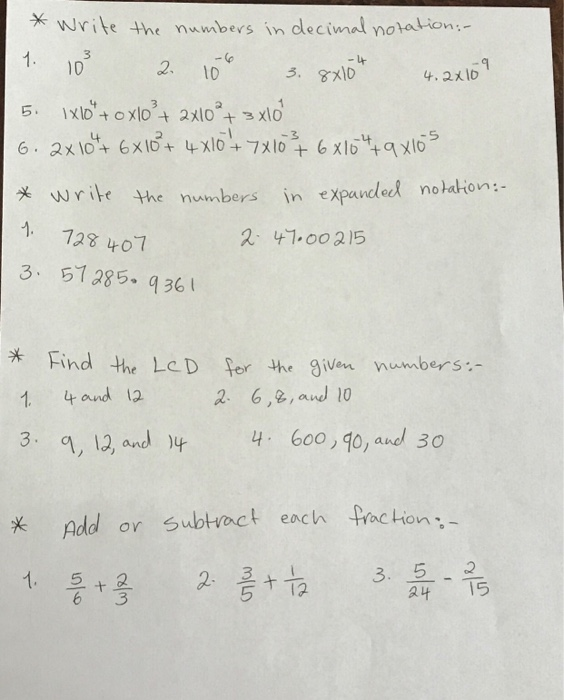 * Write the numbers in decimal notation:-
1. 10³ 2. 10⁻⁶ 3. 8x10⁻⁴ 4. 2x10⁻⁹
5. 1x10⁴ + 0x10³ + 2x10² + 3x10¹
6. 2x10⁴ + 6x10² + 4x10⁻¹ + 7x10⁻³ + 6x10⁻⁴ + 9x10⁻⁵
* Write the numbers in expanded notation:-
1. 728 407 2. 47.00215
3. 57 285.9361
* Find the LCD for the given numbers:-
1. 4 and 12 2. 6, 8, and 10
3. 9, 12, and 14 4. 600, 90, and 30
* Add or subtract each fraction:-
1. 5/6 + 2/3 2. 3/5 + 1/12 3. 5/24 - 2/15